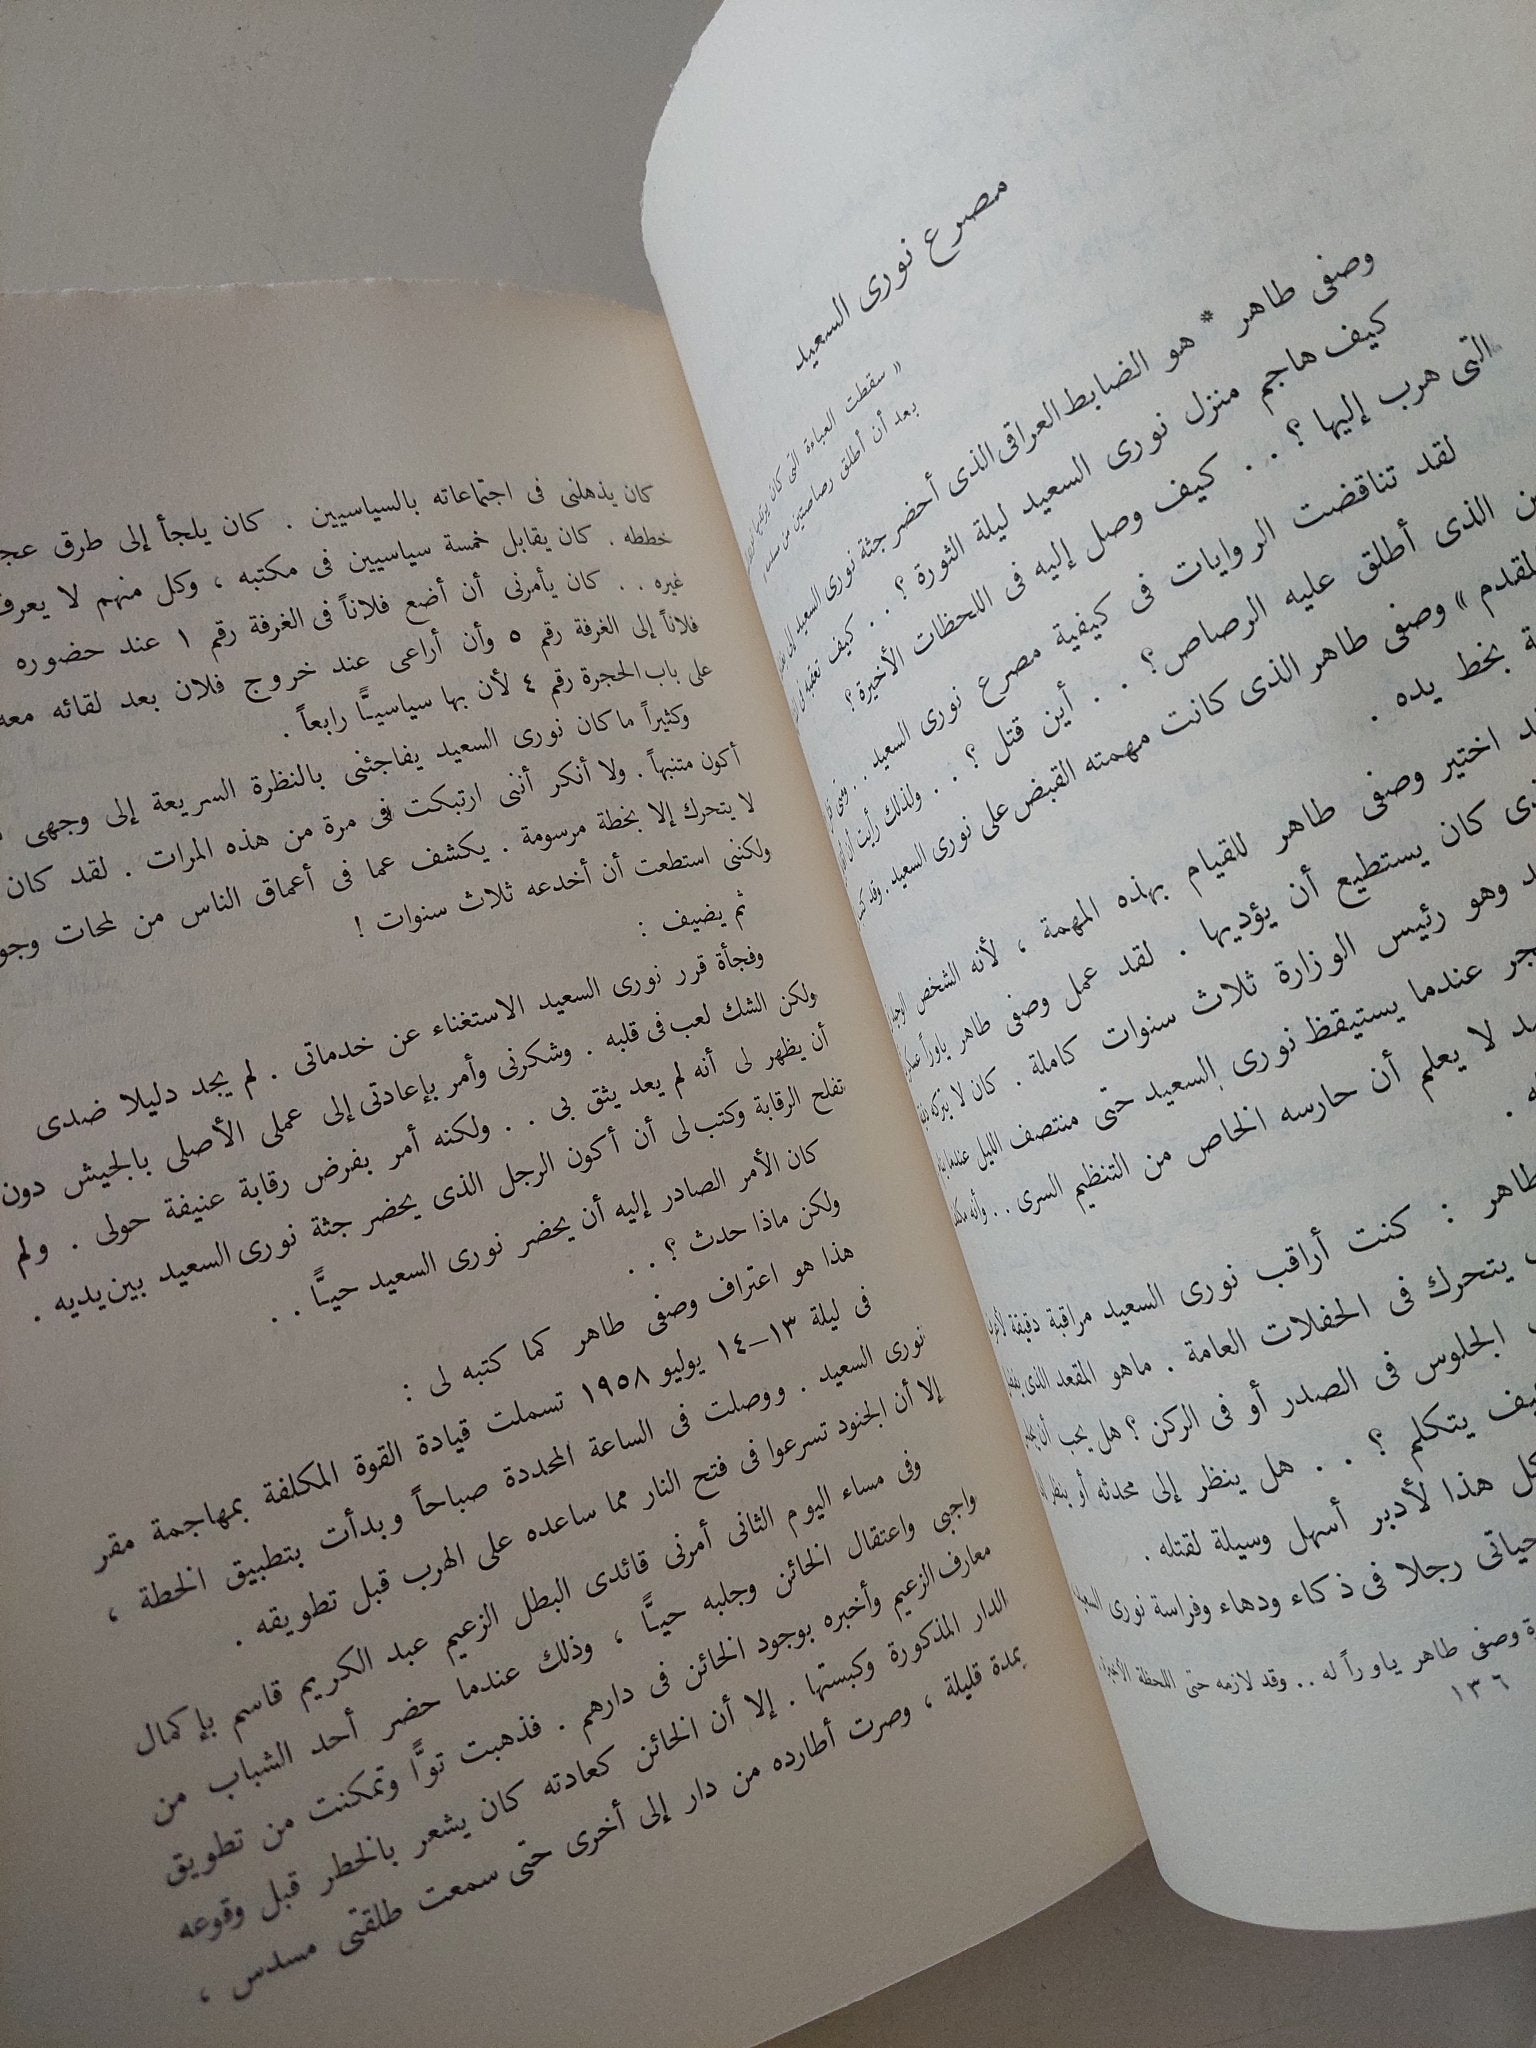 مصرع نورى السعيد
« سقطت العباءة التى كان
بعد أن أطلق رصاصتين من مسدسه
وصفى طاهر * هو الضابط العراقى الذى أحضر جثة نورى السعيد إلى
كيف هاجم منزل نورى السعيد ليلة الثورة ؟ . . كيف تعقبه إلى
التى هرب إليها ؟ . . كيف وصل إليه فى اللحظات الأخيرة ؟
لقد تناقضت الروايات فى كيفية مصرع نورى السعيد . .
الذى أطلق عليه الرصاص ؟ . . أين قتل ؟ . . ولذلك رأيت أن
وصفى طاهر الذى كانت مهمته القبض على نورى السعيد . وقد
بخط يده .
اختير وصفى طاهر للقيام بهذه المهمة ، لأنه الشخص
كان يستطيع أن يؤديها . لقد عمل وصفى طاهر ياوراً
وهو رئيس الوزارة ثلاث سنوات كاملة . كان لا يتركه
عندما يستيقظ نورى السعيد حتى منتصف الليل عندما
لا يعلم أن حارسه الخاص من التنظيم السرى . . وأنه
طاهر : كنت أراقب نورى السعيد مراقبة دقيقة
يتحرك فى الحفلات العامة . ماهو المقعد الذى
الجلوس فى الصدر أو فى الركن ؟ هل يحب أن
يتكلم ؟ . . هل ينظر إلى محدثه أو ينظر
كل هذا لأدبر أسهل وسيلة لقتله .
حياتى رجلا فى ذكاء ودهاء وفراسة نورى السعيد
وصفى طاهر ياوراً له . . وقد لازمه حتى اللحظة الأخيرة
١٣٦
كان يذهلنى فى اجتماعاته بالسياسيين . كان يلجأ إلى طرق
خططه . كان يقابل خمسة سياسيين فى مكتبه ، وكل منهم لا يعرف
غيره . . كان يأمرنى أن أضع فلاناً فى الغرفة رقم ١ عند حضوره
فلاناً إلى الغرفة رقم ٥ وأن أراعى عند خروج فلان بعد لقائه معه
على باب الحجرة رقم ٤ لأن بها سياسيًّا رابعاً .
وكثيراً ما كان نورى السعيد يفاجئنى بالنظرة السريعة إلى وجهى
أكون متنبهاً . ولا أنكر أننى ارتبكت فى مرة من هذه المرات . لقد كان
لا يتحرك إلا بخطة مرسومة . يكشف عما فى أعماق الناس من لمحات
ولكننى استطعت أن أخدعه ثلاث سنوات !
ثم يضيف :
وفجأة قرر نورى السعيد الاستغناء عن خدماتى . لم يجد دليلا ضدى
ولكن الشك لعب فى قلبه . وشكرنى وأمر بإعادتى إلى عملى الأصلى بالجيش دون
أن يظهر لى أنه لم يعد يثق بى . . ولكنه أمر بفرض رقابة عنيفة حولى . ولم
تفلح الرقابة وكتب لى أن أكون الرجل الذى يحضر جثة نورى السعيد بين يديه .
كان الأمر الصادر إليه أن يحضر نورى السعيد حيًّا .
ولكن ماذا حدث ؟ . .
هذا هو اعتراف وصفى طاهر كما كتبه لى :
فى ليلة ١٣–١٤ يوليو ١٩٥٨ تسملت قيادة القوة المكلفة بمهاجمة مقر
نورى السعيد . ووصلت فى الساعة المحددة صباحاً وبدأت بتطبيق الخطة ،
إلا أن الجنود تسرعوا فى فتح النار مما ساعده على الهرب قبل تطويقه .
وفى مساء اليوم الثانى أمرنى قائدى البطل الزعيم عبد الكريم قاسم بإكمال
واجبى واعتقال الخائن وجلبه حيًّا ، وذلك عندما حضر أحد الشباب من
معارف الزعيم وأخبره بوجود الخائن فى دارهم . فذهبت توًّا وتمكنت من تطويق
الدار المذكورة وكبستها . إلا أن الخائن كعادته كان يشعر بالخطر قبل وقوعه
بمدة قليلة ، وصرت أطارده من دار إلى أخرى حتى سمعت طلقتى مسدس ،